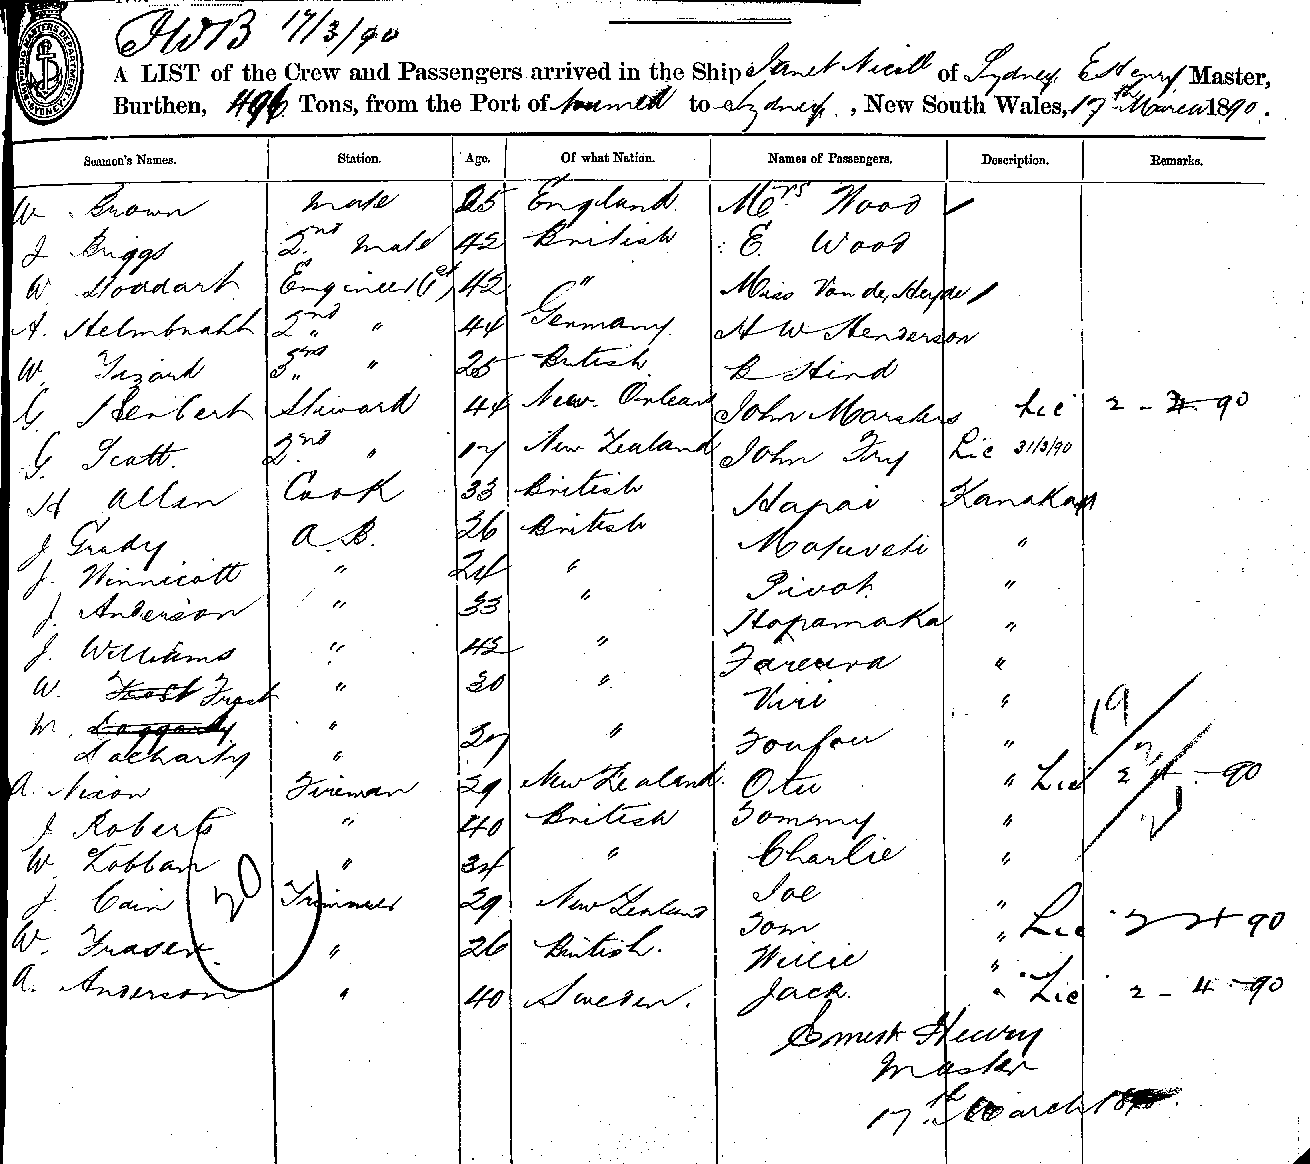 JWB 17/3/90
A LIST of the Crew and Passengers arrived in the Ship Janet Nicoll of Sydney E Henry Master,
Burthen, 496 Tons, from the Port of to Sydney, New South Wales, 17th March 1890.
Seamen's Names. Station. Age. Of what Nation. Names of Passengers. Description. Remarks.
W. Brown Mate 25 England Mrs Wood
J Briggs 2nd Mate 42 British E. Wood
W Stoddart Engineer (1st) 42 " Miss Van der Heyde
A. 2nd " 44 Germany H W Henderson
W. Tizard 3rd " 25 British R Hind
G. Herbert Steward 44 New Orleans John Marsters Lic 2-4-90
G. Scott. 2nd " 17 New Zealand John Fry Lic 31/3/90
H Allan Cook 33 British Hapai Kanakas
J Grady A.B. 26 British "
J. Winnicott " 24 " "
J. Anderson " 33 " Hopamaka "
J. Williams " 42 " "
W. Frost Frost " 30 " Viri "
W. Doggarty " 27 " Foufou " 19
Docharty "
A. Nixon Fireman 29 New Zealand Otu " Lic 2 4 - 90
J Roberts " 40 British Tommy "
W. Lobban " 34 " Charlie "
J. Cain 20 Trimmer 29 New Zealand Joe "
W. Fraser. " 26 British. Tom " Lic 2 4 90
A. Anderson " 40 Sweden. Willie "
Jack. " Lic 2-4-90
Ernest Henry
Master
17th March 1890.